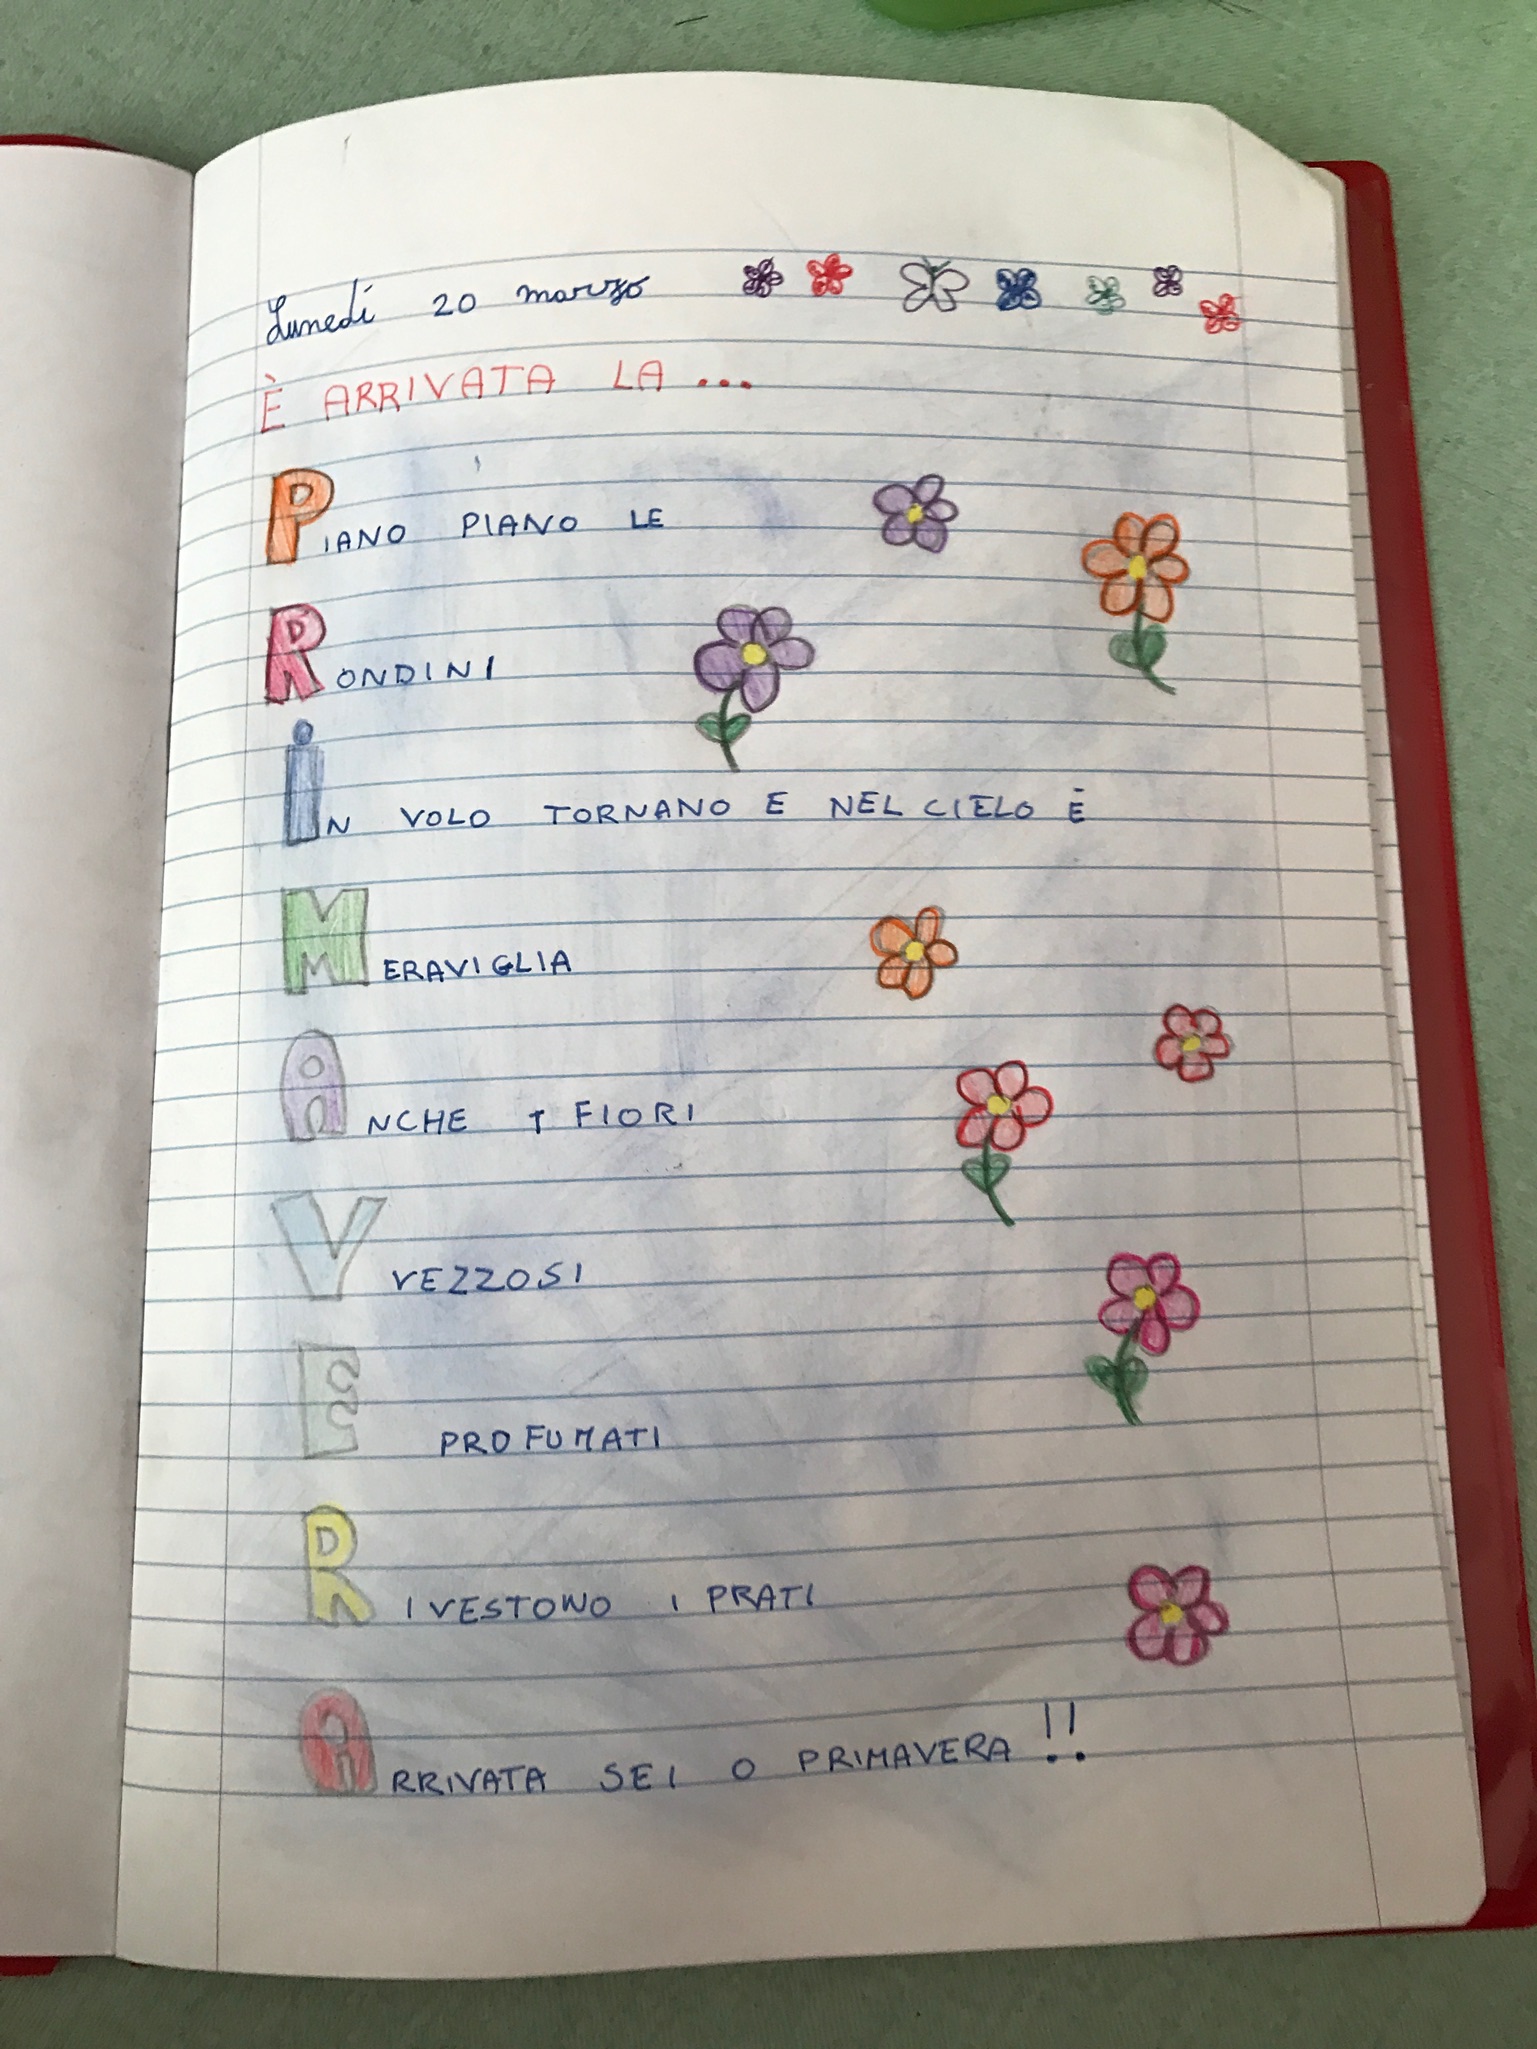 Lunedì 20 marzo
È ARRIVATA LA ...
PIANO PIANO LE
RONDINI
IN VOLO TORNANO E NEL CIELO È
MERAVIGLIA
ANCHE I FIORI
V VEZZOSI
E PROFUMATI
RIVESTONO I PRATI
ARRIVATA SEI O PRIMAVERA!!